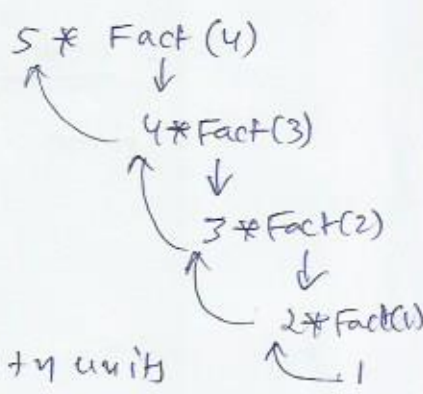 5 * Fact (4)
4 * Fact (3)
3 * Fact (2)
2 * Fact (1)
+n units
1